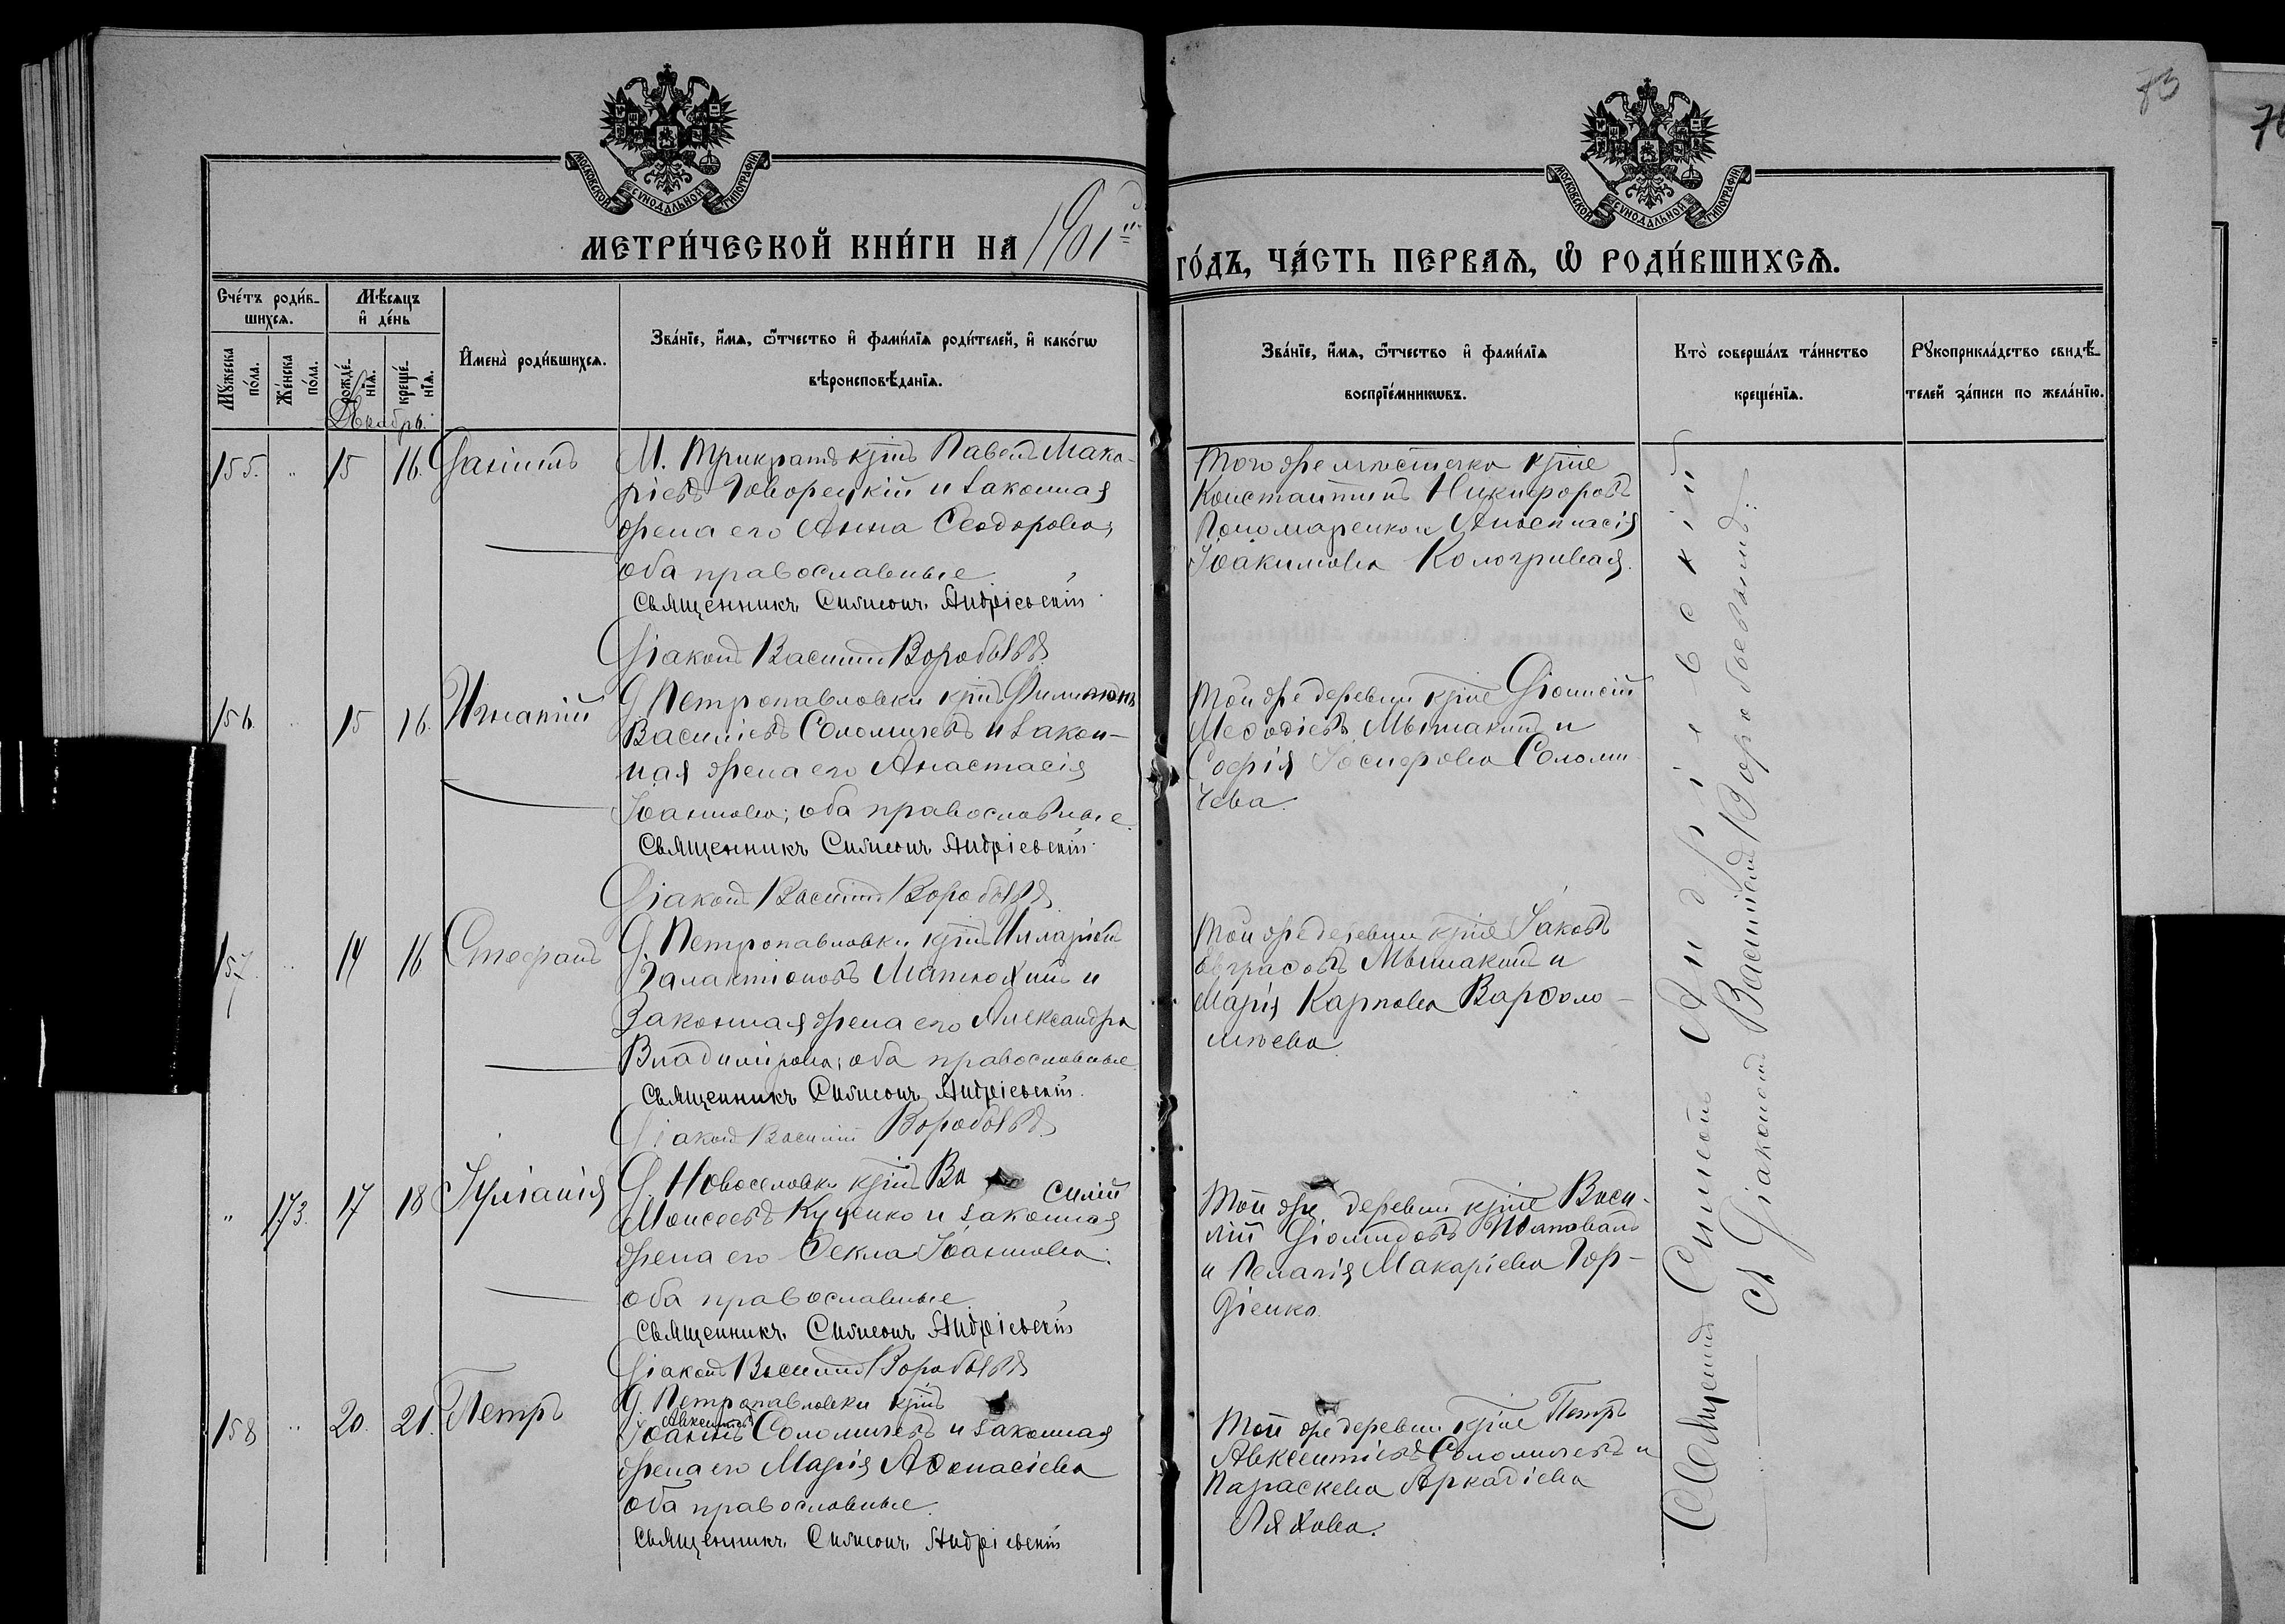 73
МОСКОВСКОЙ СѴНОДАЛЬНОЙ ТИПОГРАФІИ
МОСКОВСКОЙ СѴНОДАЛЬНОЙ ТИПОГРАФІИ
МЕТРИ́ЧЕСКОЙ КНИ́ГИ НА 1901й
ГО́ДЪ, ЧА́СТЬ ПЕРВАЯ, Ѡ РОДИ́ВШИХСЯ.
Сче́тъ роди́в-
шихся.
Мѣсяцъ
и де́нь
Мꙋжеска
по́ла.
Же́нска
по́ла.
рожде́-
нїя.
креще́-
нїя.
Имена̀ роди́вшихся.
Зва́нїе, и́мя, ѻ́тчество и фами́лїя роди́телей, и како́гѡ
вѣроисповѣданїя.
Зва́нїе, и́мя, ѻ́тчество и фами́лїя
воспрїе́мникѡвъ.
Кто̀ соверша́лъ та́инство
креще́нїя.
Рꙋкоприкла́дство свидѣ-
телей за́писи по жела́нїю.
Декабрь.
155. " 15 16. Даніилъ
М. Трикратъ крт҃ъ Павелъ Мака-
ріевъ Говорецкій и законная
жена его Анна Ѳеодорова;
оба православные
Священникъ Симеонъ Андріевскій
Діаконъ Василій Воробьевъ
Того же мѣстечка крт҃не
Константинъ Никифоровъ
Пономаренко и Анастасія
Іоакимова Кологривая.
156. " 15 16. Игнатій
Д Петропавловки крт҃ъ Филимонъ
Василіевъ Соломичевъ и закон-
ная жена его Анастасія
Іоаннова; оба православные.
Священникъ Симеонъ Андріевскій
Діаконъ Василій Воробьевъ
Той же деревни крт҃не Діонисій
Меѳодіевъ Мышакинъ и
Софія Іосифова Соломи
чева.
157. " 14 16 Стефанъ
Д. Петропавловки крт҃ъ Иларіонъ
Галактіоновъ Матюхинъ и
Законная жена его Александра
Владимірова; оба православные
Священникъ Симеонъ Андріевскій.
Діаконъ Василій Воробьевъ
Той же деревни крт҃не Іаковъ
Евграфовъ Мышакинъ и
Марія Карпова Варѳоло-
мѣева
" 173. 17 18 Іуліанія
Д. Новоселовки крт҃ъ Ва силій
Моисеевъ Куценко и законная
жена его Ѳекла Іоаннова:
оба православные
Священникъ Симеонъ Андріевскій
Діаконъ Василій Воробьевъ
Той же деревни крт҃не Васи-
лій Діомидовъ Шаповалъ
и Пелагія Макаріева Гор-
діенко.
158 " 20. 21. Петръ
Д. Петропавловки крт҃ъ
Авксентіевъ
Іоаннъ Соломичевъ и законная
жена его Марія Аѳанасіева
оба православные.
Священникъ Симеонъ Андріевскій
Той же деревни крт҃не Петръ
Авксентіевъ Соломичевъ и
Параскева Аркадіева
Ляхова.
Священникъ Симеонъ Андріевскій
съ Діакономъ Василіемъ Воробьевымъ.